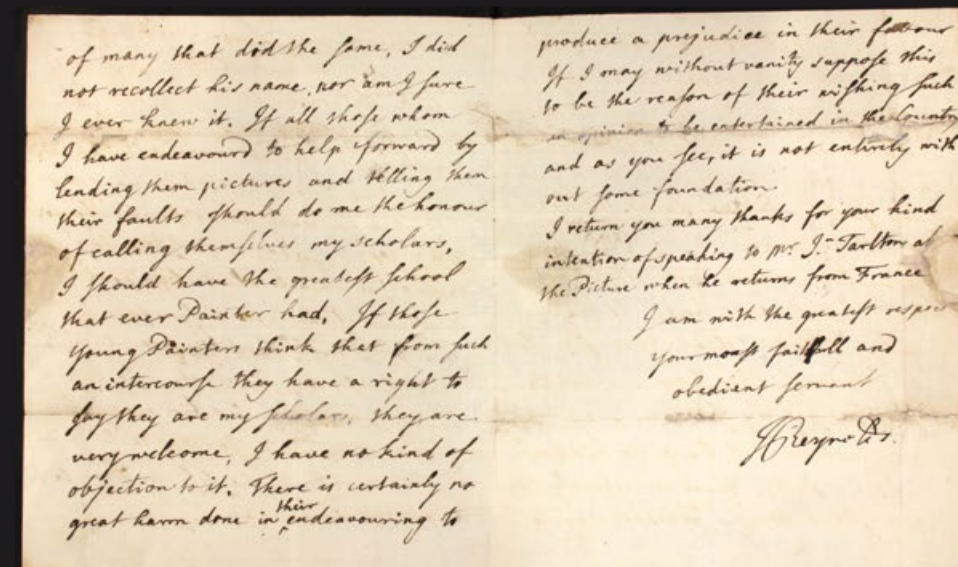 of many that did the same, I did
not recollect his name, nor am I sure
I ever knew it. If all those whom
I have endeavourd to help forward by
lending them pictures and telling them
their faults should do me the honour
of calling themselves my scholars,
I should have the greatest school
that ever Painter had. If those
young Painters think that from such
an intercourse they have a right to
say they are my scholars, they are
very welcome, I have no kind of
objection to it. There is certainly no
great harm done in their endeavouring to
produce a prejudice in their favour
If I may without vanity suppose this
to be the reason of their wishing such
an opinion to be entertained in the Country
and as you see, it is not entirely with
out some foundation.
I return you many thanks for your kind
intention of speaking to Mr. Jn. Tarlton at
the Picture when he returns from France
I am with the greatest respect
your most faithfull and
obedient servant
JReynolds.